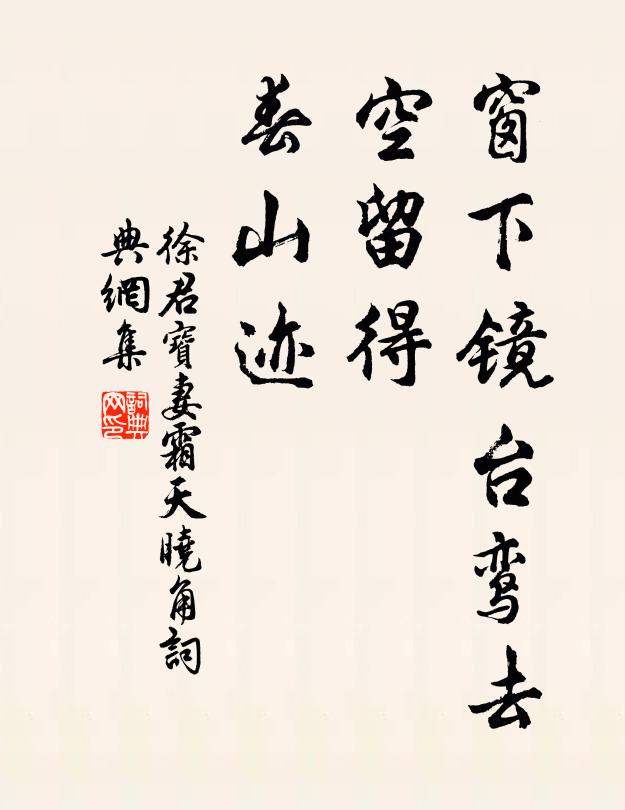 窗下镜台鸾去
空留得
春山迹
徐君寶妻霜天曉角詞
典網集
詞典网印